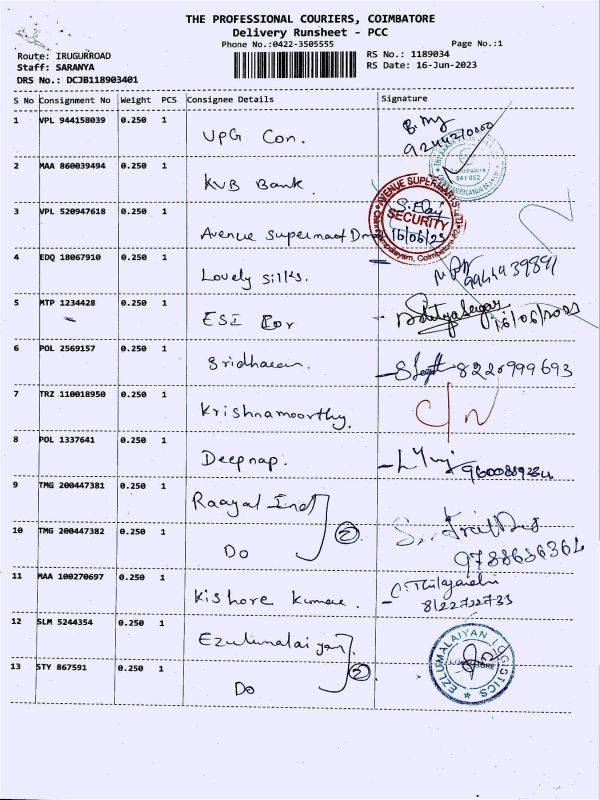 THE PROFESSIONAL COURIERS, COIMBATORE
Delivery Runsheet - PCC
Phone No.:0422-3505555
Page No.:1
Route: IRUGURROAD
RS No.: 1189034
Staff: SARANYA
RS Date: 16-Jun-2023
DRS No.: DCJB118903401
S No Consignment No Weight PCS Consignee Details Signature
1 VPL 944158039 0.250 1 UPG Con.
2 MAA 860039494 0.250 1 KVB Bank.
3 VPL 520947618 0.250 1 Avenue Supermart
AVENUE SUPERMARTS LTD
SECURITY
16/06/23
4 EDQ 18067910 0.250 1 Lovely Silks.
5 MTP 1234428 0.250 1 ESI
16/06/2023
6 POL 2569157 0.250 1 Sridharan. 8220999693
7 TRZ 110018950 0.250 1 Krishnamoorthy. C/N
8 POL 1337641 0.250 1 Deepnap.
9 TMG 200447381 0.250 1 Raayal Ind
10 TMG 200447382 0.250 1 Do 2
9788636364
11 MAA 100270697 0.250 1 Kishore Kumar.
8122722733
12 SLM 5244354 0.250 1 Ezulumalaiyan.
13 STY 867591 0.250 1 Do 2
EZLUMALAIYAN LOGISTICS